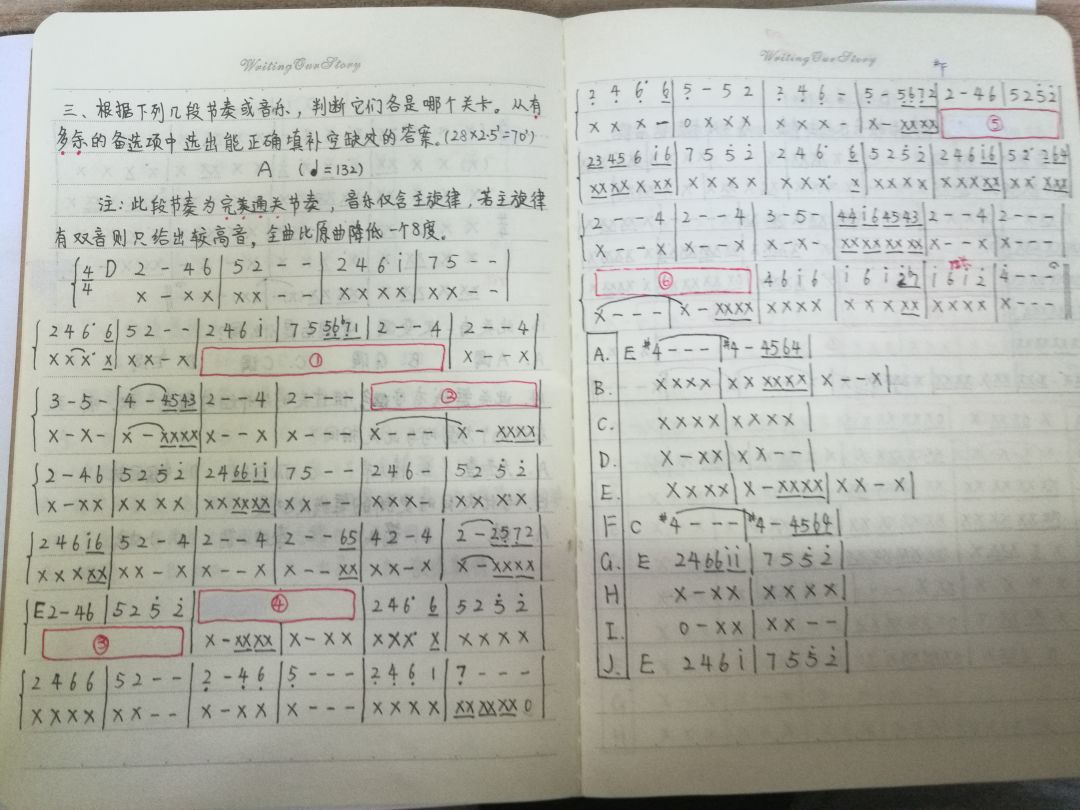 Writing Our Story
三、根据下列几段节奏或音乐，判断它们各是哪个关卡。从有
多余的备选项中选出能正确填补空缺处的答案。(28×2.5'=70')
A (♩=132)
注：此段节奏为完美通关节奏，音乐仅含主旋律，若主旋律
有双音则只给出较高音，全曲比原曲降低一个8度。
4/4 D 2 - 4 6 | 5 2 - - | 2 4 6 i | 7 5 - - |
X - X X | X X - - | X X X X | X X - - |
2 4 6· 6 | 5 2 - - | 2 4 6 i | 7 5 5 6 b7 1 | 2 - - 4 | 2 - - 4 |
X X X· X | X X - X | ① | X - - X |
3 - 5 - | 4 - 4543 | 2 - - 4 | 2 - - - | ②
X - X - | X - XXXX | X - - X | X - - - | X - - - | X - XXXX |
2 - 4 6 | 5 2 5̇ 2̇ | 2 4 66 ii | 7 5 - - | 2 4 6 - | 5 2 5̇ 2̇
X - X X | X X X X | X X XX XX | X X - - | X X X - | X X X X
2 4 6 i6 | 5 2 - 4 | 2 - - 4 | 2 - - 65 | 4 2 - 4 | 2 - 2572
X X X XX | X X - X | X - - X | X - - XX | X X - X | X - XXXX
E 2 - 4 6 | 5 2 5̇ 2̇ | ④ | 2 4 6· 6 | 5 2 5̇ 2̇
③ | X - XXXX | X - X X | X X X· X | X X X X
2 4 6 6 | 5 2 - - | 2̣ - 4̣ 6̣ | 5̣ - - - | 2̣ 4̣ 6̣ 1 | 7̣ - - -
X X X X | X X - - | X - X X | X - - - | X X X X | XX XX XX 0
Writing Our Story
2̣ 4̣ 6̣· 6̣ | 5̣ - 5 2 | 2̣ 4̣ 6̣ - | 5̣ - 5672 | 2 - 4 6 | 5 2 5̇ 2̇
X X X - | 0 X X X | X X X - | X - XXXX | ⑤
23 45 6 i6 | 7 5 5̇ 2̇ | 2 4 6· 6 | 5 2 5̇ 2̇ | 2 4 6 i6 | 5 2· 264
XX XX X XX | X X X X | X X X· X | X X X X | X X X XX | X X· XXX
2 - - 4 | 2 - - 4 | 3 - 5 - | 44 i6 4543 | 2 - - 4 | 2 - - -
X - - X | X - - X | X - X - | XX XX XX XX | X - - X | X - - -
⑥ | 4 6 i 6 | i 6 i 2̇7 | i 6 i 2̇ | 4̇ - - -
X - - - | X - XXXX | X X X X | X X X XX | X X X X | X - - -
A. E #4 - - - | #4 - 4564 |
B. X X X X | X X XXXX | X - - X |
C. X X X X | X X X X |
D. X - X X | X X - - |
E. X X X X | X - XXXX | X X - X |
F C #4 - - - | #4 - 4564 |
G. E 2 4 66 ii | 7 5 5̇ 2̇ |
H X - X X | X X X X |
I. 0 - X X | X X - - |
J. E 2 4 6 i | 7 5 5̇ 2̇ |